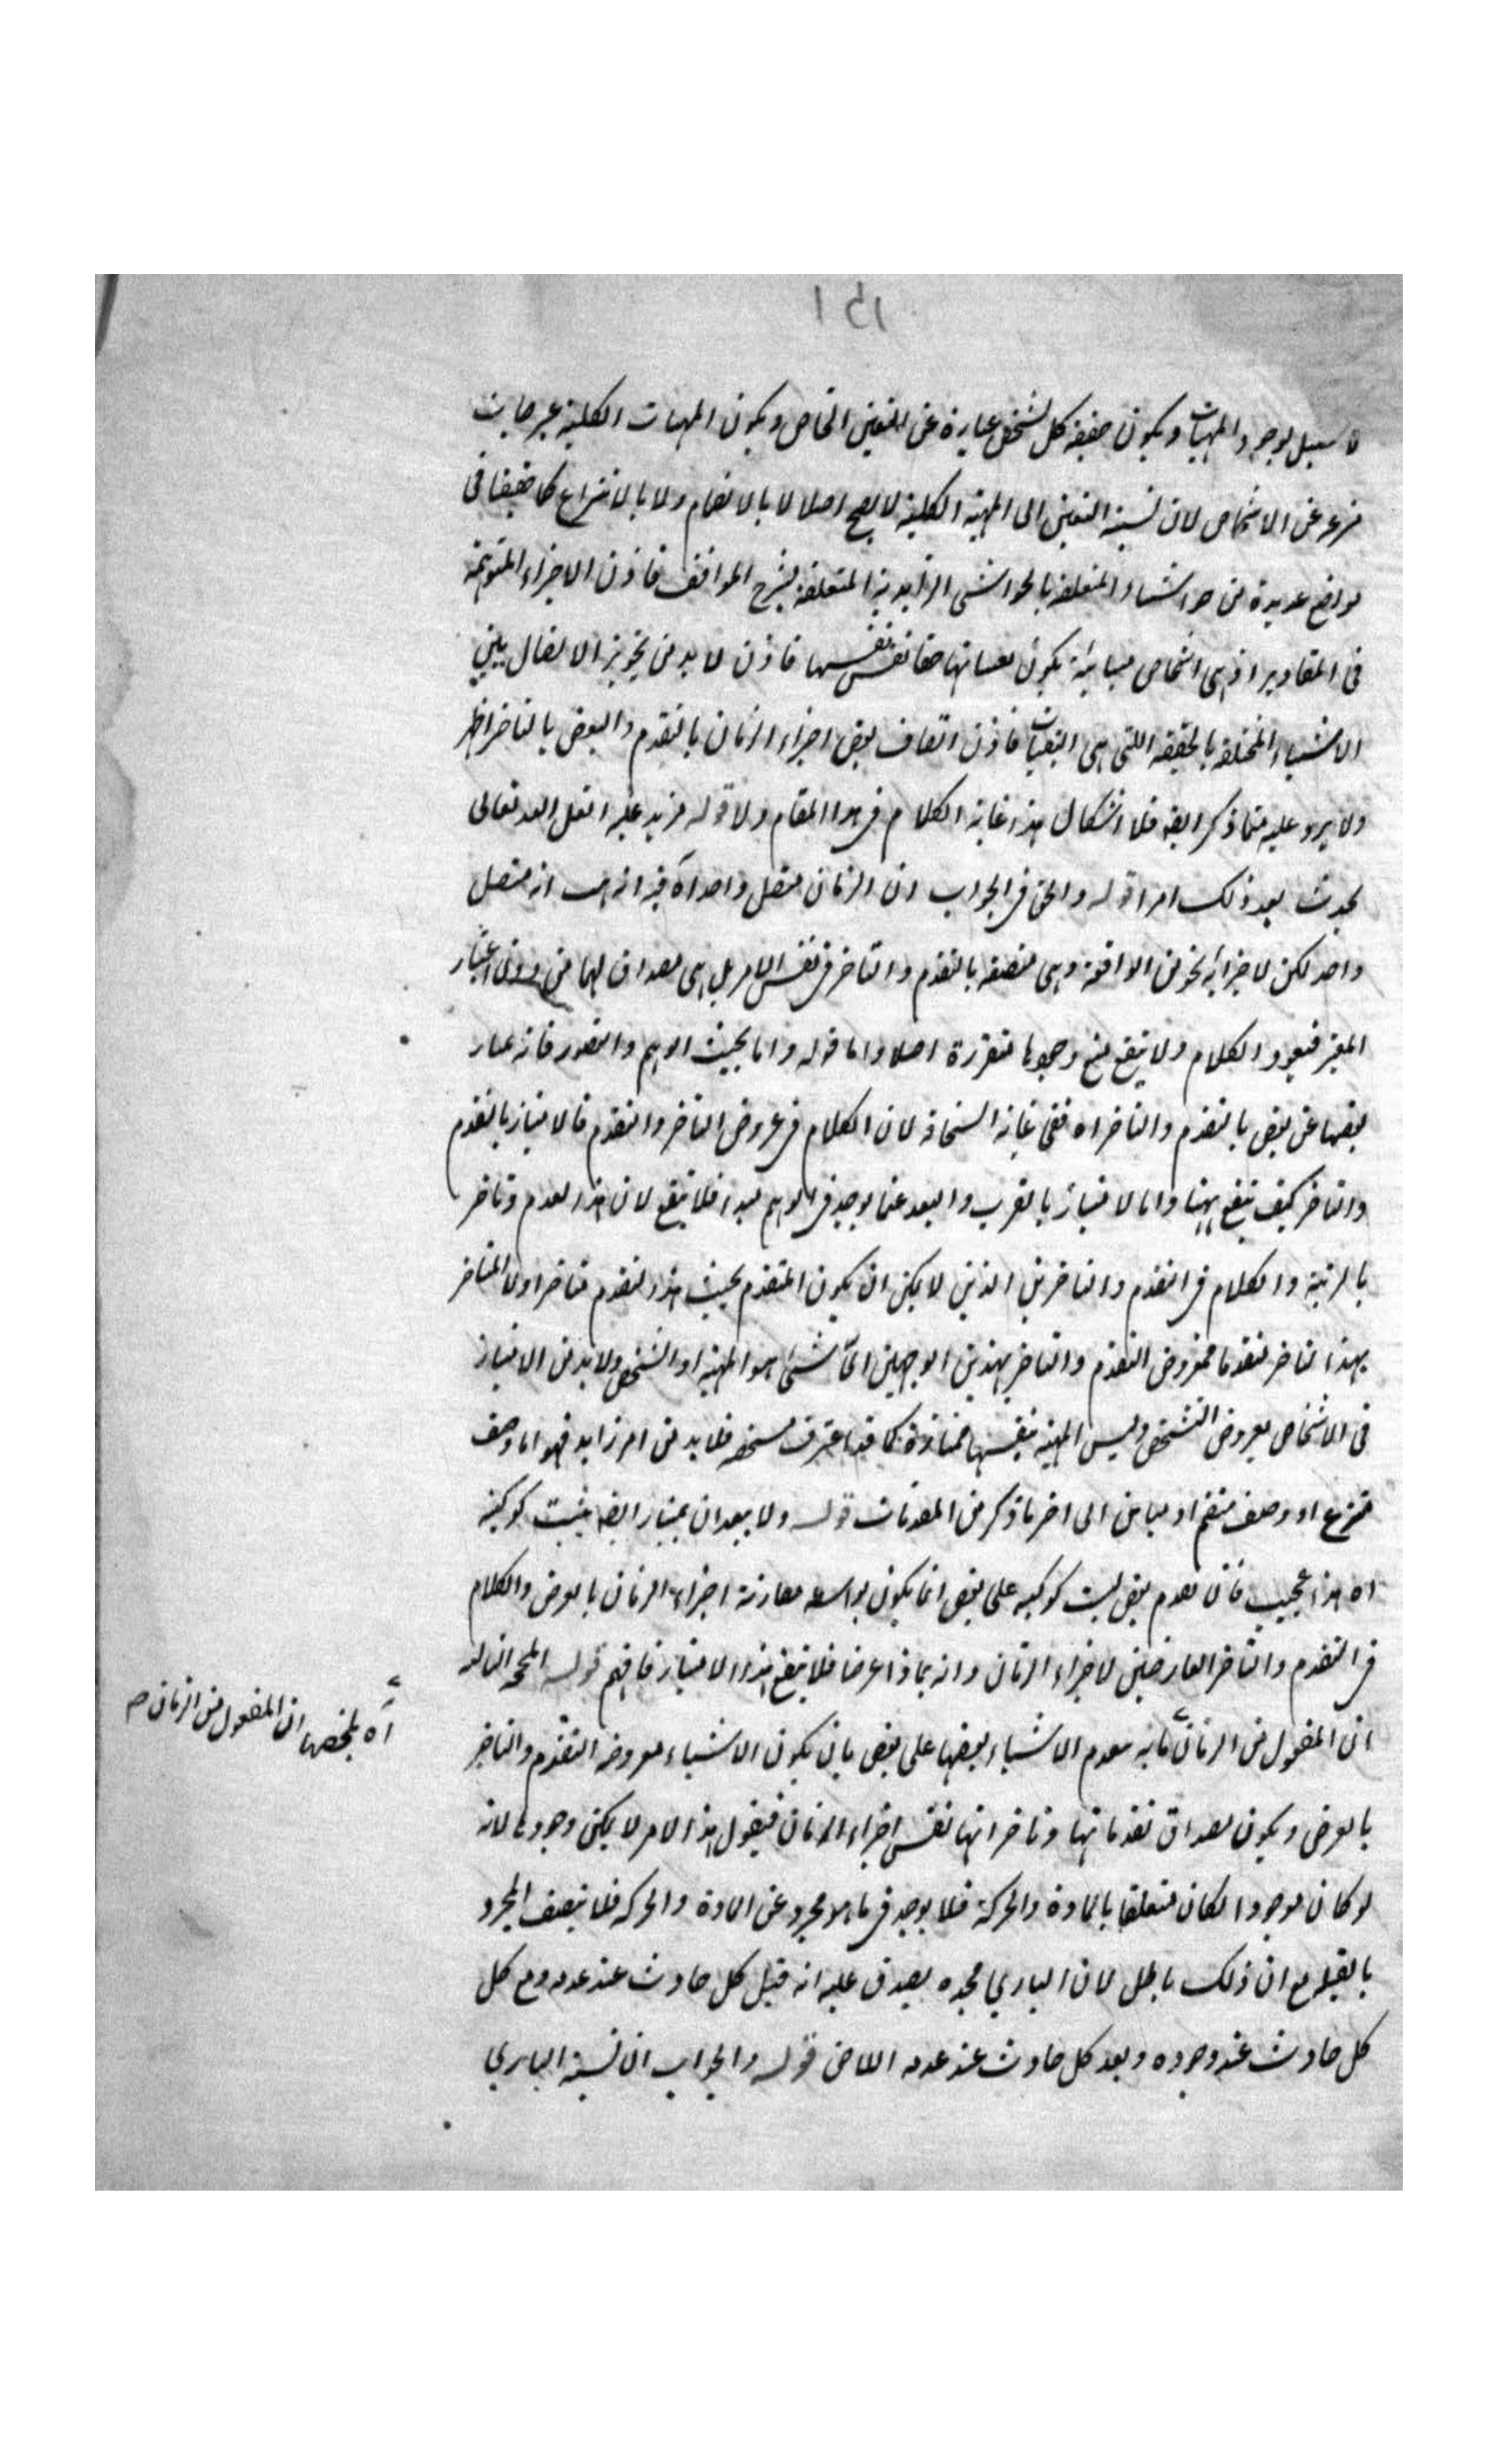 ١٥١
لا سبيل لوجود المهيات ويكون حقيقة كل شخص عبارة عن التعين الخاص ويكون المهيات الكلية عبرحايث
منزعه عن الاشخاص لان نسبة التعين الى المهية الكلية لا يصح اصلا لا بالانضمام ولا بالانتزاع كما حققنا في
مواضع عديدة من حواشينا المتعلقة بالحواشي الزاهدية المتعلقة بشرح المواقف فاذن الاجزاء المتوهمة
في المقادير اذ هي اشخاص متباينة يكون حقائق نفسها فاذن لا بد من تجويز الاتصال بين
الاشياء المختلفة بالحقيقة اللتي هي التعينات فاذن اتصاف بعض اجزاء الزمان بالتقدم والبعض بالتاخر اظهر
ولا يرد عليه مما ذكر ايضه فلا اشكال هذا غاية الكلام في هذا المقام ولا مزيد عليه لعل الله تعالى
يحدث بعد ذلك امرا قوله والحق في الجواب ان الزمان متصل واحد آه فيه انه هب انه متصل
واحد لكن لاجزائه نحو من الواقعية وهي متصفة بالتقدم والتاخر في نفس الامر بل هي مصداق لهما من دون اعتبار
المعتبر فيعود الكلام ولا ينفع منع وجودها متقررة اصلا واما قوله واما بحيث الوهم والتصور فانه يمتاز
بعضها عن بعض بالتقدم والتاخر اه ففي غاية السخافة لان الكلام في عروض التاخر والتقدم فالامتياز بالتقدم
والتاخر كيف ينفع ههنا واما الامتياز بالقرب والبعد عما يوجد في الوهم مبدا فلا ينفع لان هذا تقدم وتاخر
بالرتبة والكلام في التقدم والتاخر من الذين لا يمكن ان يكون المتقدم بحيث هذا التقدم متاخرا ولا المتاخر
بهذا التاخر متقدما فمعروض التقدم والتاخر بهذين الوجهين اي شئ هو المهية او الشخص ولا بد من الامتياز
في الاشخاص بعروض التشخص وليس المهية بنفسها ممتازة كما قد اعترف فلا بد من امر زايد فهو اما وصف
منتزع او وصف منضم او مباين الى اخر ما ذكر من المقدمات قوله ولا يبعد ان يمتاز ايضه بنسبت كوكبية
اه هذا عجيب فان تقدم بعض نسبت كوكبيه على بعض انما يكون بواسطة مقارنة اجزاء الزمان بالعرض والكلام
في التقدم والتاخر العارضين لاجزاء الزمان وانه بماذا عرضا فلا ينفع هذا الامتياز فافهم قوله الحجة الثالثه
ان المعقول من الزمان ما به تقدم الاشياء بعضها على بعض بان يكون الاشياء معروضه التقدم والتاخر
آه ملخصها ان المعقول من الزمان صح
بالعرض ويكون مصداق تقدماتها وتاخراتها نفس اجزاء الزمان فيقول هذا الامر لا يمكن وجوده لانه
لو كان موجودا لكان متعلقا بالمادة والحركة فلا يوجد في ما هو مجرد عن المادة والحركه فلا يتصف المجرد
بالقبلية مع ان ذلك باطل لان الباري مجده يصدق عليه انه قبل كل حادث عند عدمه ومع كل
كل حادث عند وجوده وبعد كل حادث عند عدمه اللاحق قوله والجواب ان نسبة الباري